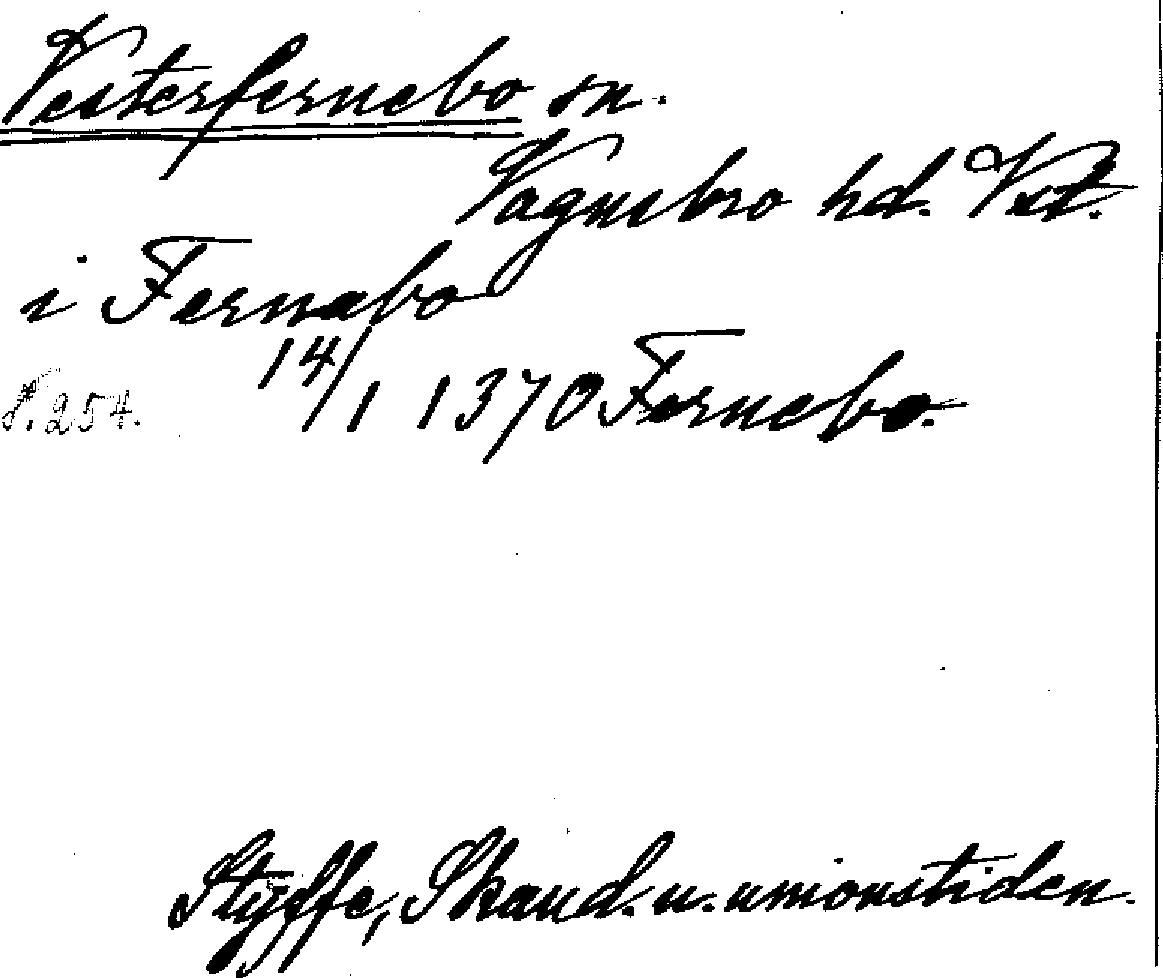 Vesterfernebo sn.
Vagnsbro hd. Vst.
i Fernabo
S. 254. 14/1 1370 Fernebo.
Styffe, Skand. u. unionstiden.